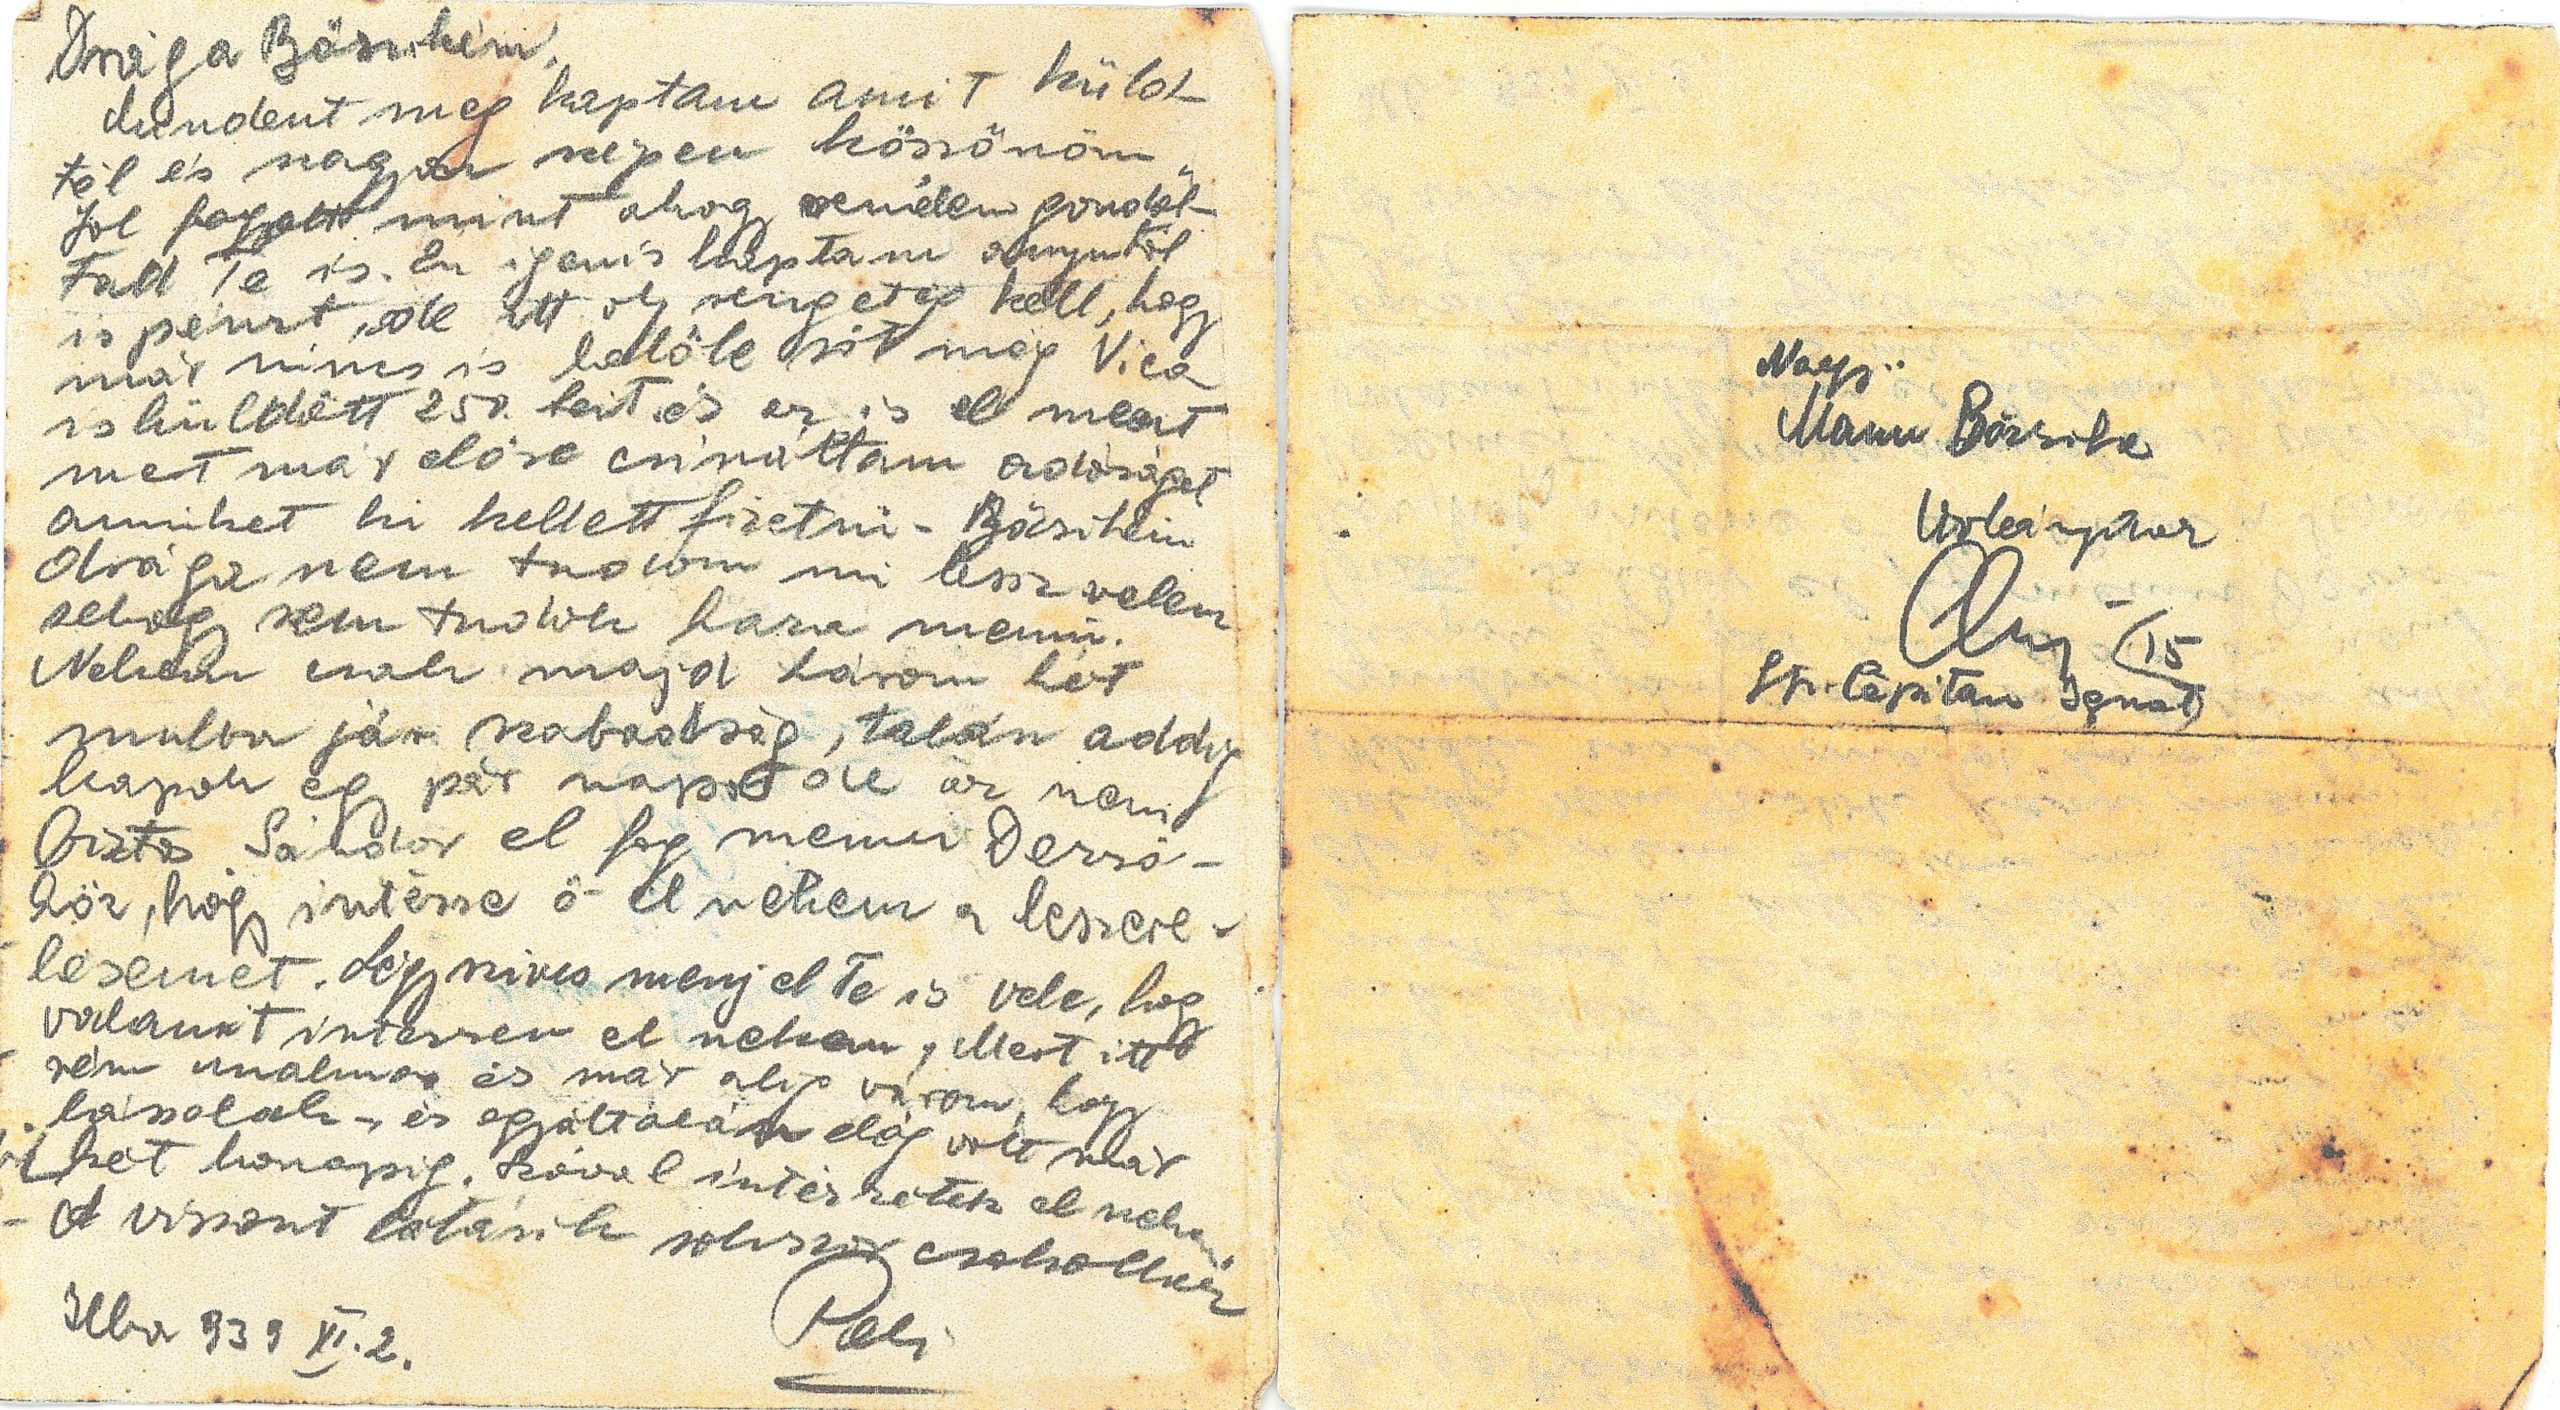 Drága Bözsikém,
Mindent meg kaptam amit küld-
tél és nagyon szépen köszönöm,
Jól fogott mint ahog gondol-
tad Te is. Én igenis kaptam anyutól
is pénzt, de itt oly rengeteg kell, hogy
már nincs is belőle sőt még Vica
is küldött 250. leit és ez is el ment
met már előre csináltam adóságot
amiket ki kellett fizetni - Bözsikém
drága nem tudom mi lessz velem
sehog sem tudok haza menni.
Nekem csak majd három hét
mulva jár szabadság, talán addig
kapok eg pár napot de az nem
biztos Sándor el fog menni Derzsö-
höz, hog intézze ő el nekem a leszere-
lésemet. Légy szives menj el Te is vele, hog
valamit intézzen el nekem, Mert itt
rém unalmas és már alig várom, hogy
lássalak, és egyáltalán elég volt már
két honapig. Szóval intézzétek el nekem
A viszont látásik sokszor csokollak
Pali
Ilba 939 XI. 2.
Nags..
Mann Bözsike
Usleánykor
Cluj - /15
Str. Capitan Ignat